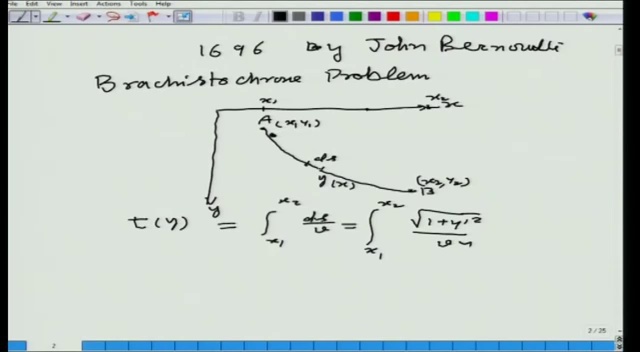 File Edit View Insert Actions Tools Help
1696 By John Bernoulli
Brachistochrone Problem
x₁ x₂ x
A (x₁, y₁)
ds
y(x)
(x₂, y₂)
B
y
t(y) = ∫_{x₁}^{x₂} ds/v = ∫_{x₁}^{x₂} √(1+y'²)/
2 / 25
2